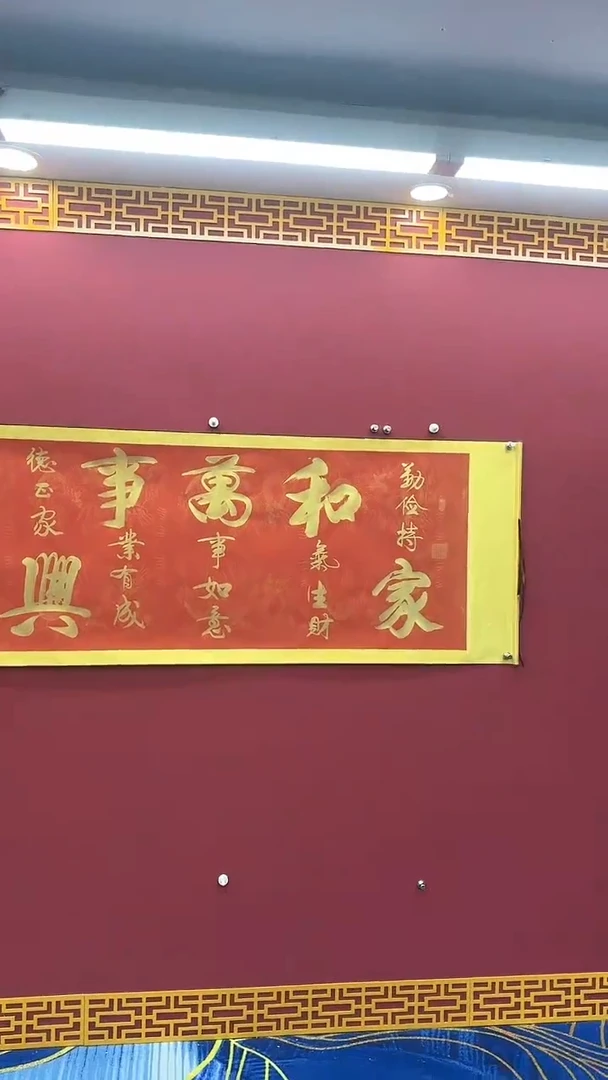 勤俭持家
和氣生財
萬事如意
事業有成
德家興